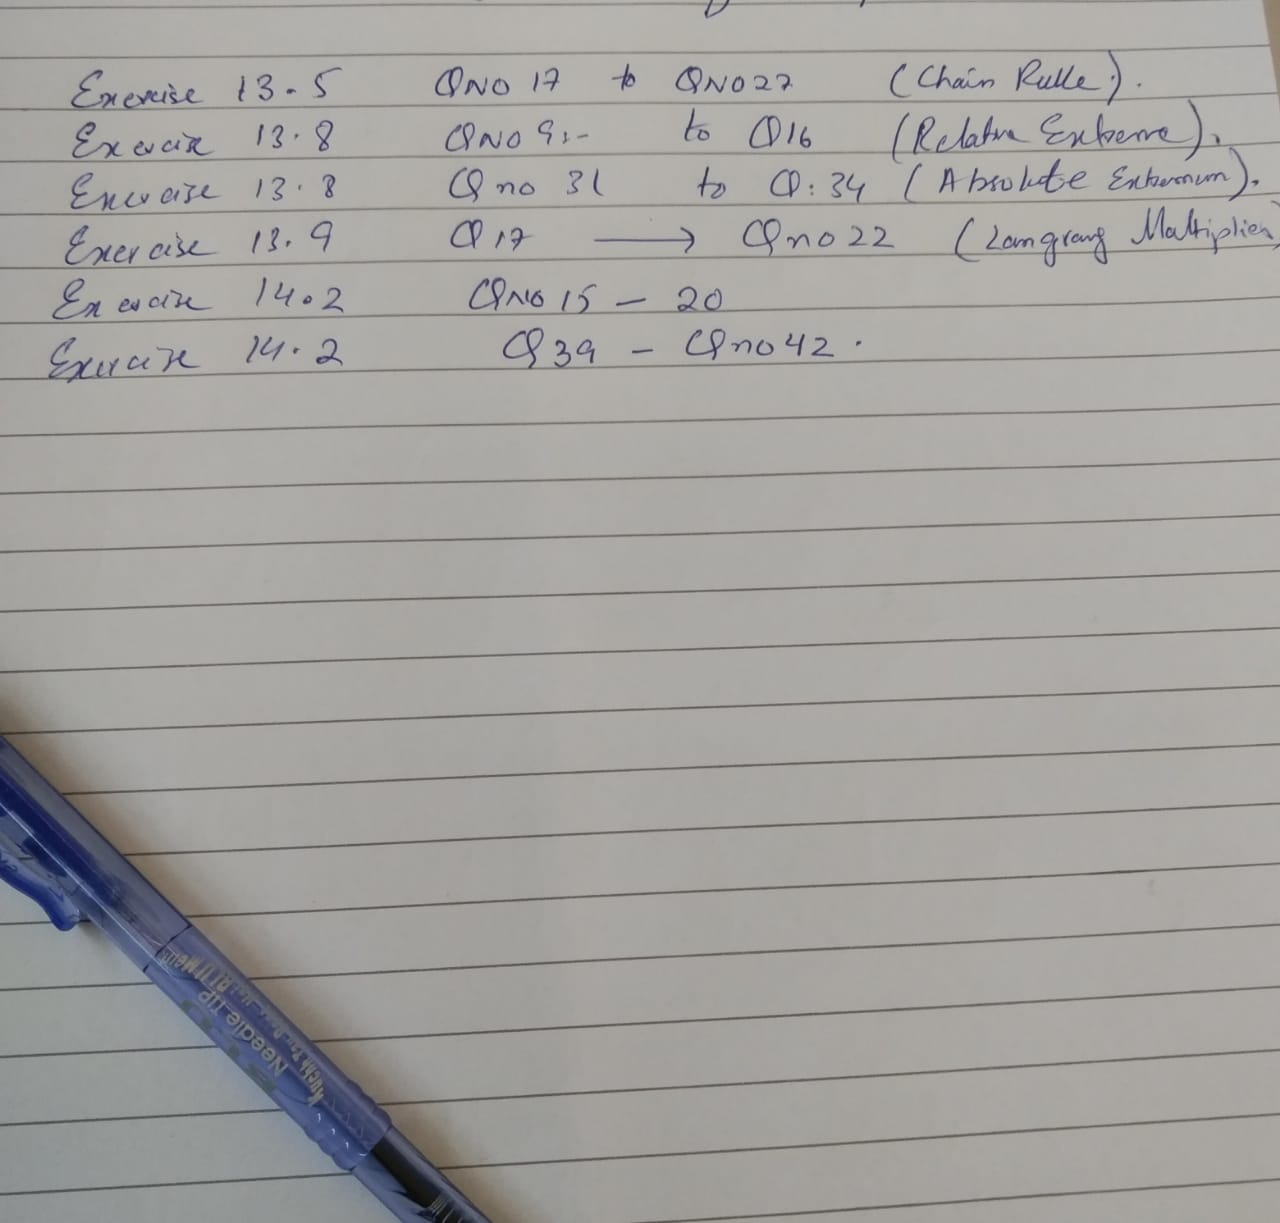 Exercise 13.5 QNO 17 to QNO 22 (Chain Rulle).
Exercise 13.8 QNO 9:- to Q16 (Relative Extreme).
Exercise 13.8 Q no 31 to Q: 34 (Absolute Extremum).
Exercise 13.9 Q 17 → Qno 22 (Langrang Multiplier)
Exercise 14.2 QNO 15 - 20
Exercise 14.2 Q 39 - Qno 42.
Needle TIP